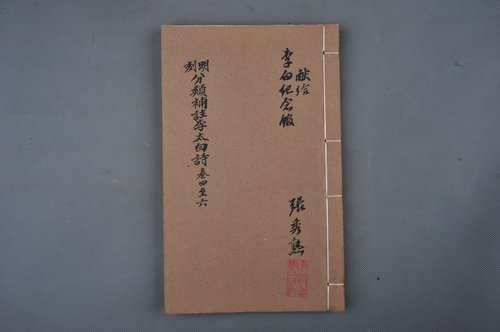 献给
李白纪念馆
張秀熟
明刻
分類補註李太白詩卷四至六